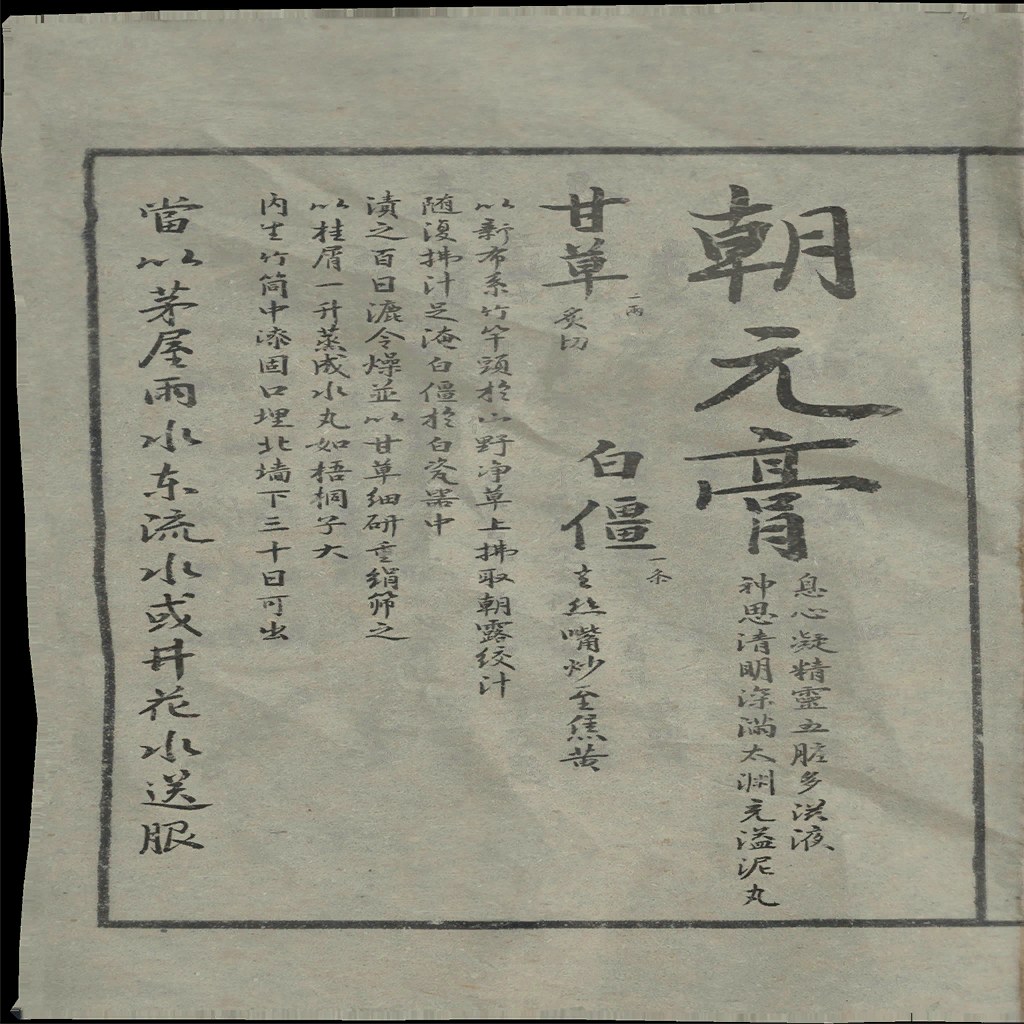 朝元膏
息心凝精靈五脏多洪液
神思清明深满太渊充溢泥丸
甘草
一两
炙切
白僵
一条
去丝嘴炒至焦黄
以新布系竹竿頭於山野净草上拂取朝露绞汁
随復拂汁足淹白僵於白瓷器中
漬之百日漉令燥並以甘草细研重绢筛之
以桂屑一升蒸成水丸如梧桐子大
内生竹筒中漆固口埋北墙下三十日可出
當以茅屋雨水东流水或井花水送服